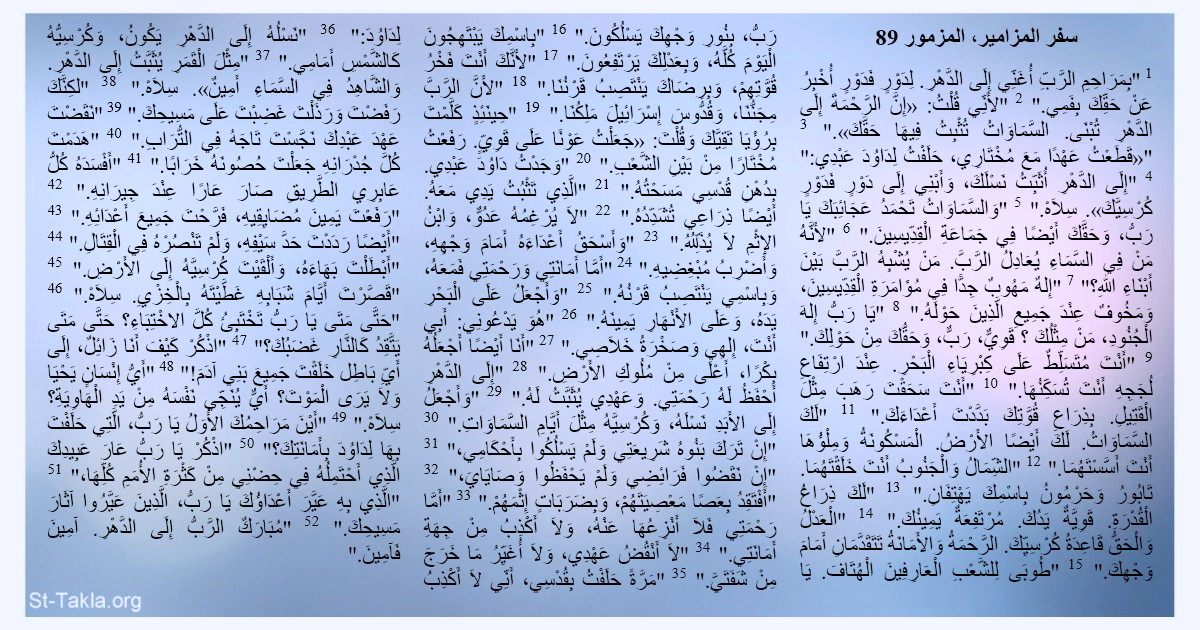 سفر المزامير، المزمور 89
1 "بِمَرَاحِمِ الرَّبِّ أُغَنِّي إِلَى الدَّهْرِ. لِدَوْرٍ فَدَوْرٍ أُخْبِرُ
عَنْ حَقِّكَ بِفَمِي." 2 "لأَنِّي قُلْتُ: «إِنَّ الرَّحْمَةَ إِلَى
الدَّهْرِ تُبْنَى. السَّمَاوَاتُ تُثْبِتُ فِيهَا حَقَّكَ»." 3
"«قَطَعْتُ عَهْدًا مَعَ مُخْتَارِي، حَلَفْتُ لِدَاوُدَ عَبْدِي:"
4 "إِلَى الدَّهْرِ أُثَبِّتُ نَسْلَكَ، وَأَبْنِي إِلَى دَوْرٍ فَدَوْرٍ
كُرْسِيَّكَ». سِلاَهْ." 5 "وَالسَّمَاوَاتُ تَحْمَدُ عَجَائِبَكَ يَا
رَبُّ، وَحَقَّكَ أَيْضًا فِي جَمَاعَةِ الْقِدِّيسِينَ." 6 "لأَنَّهُ
مَنْ فِي السَّمَاءِ يُعَادِلُ الرَّبَّ. مَنْ يُشْبِهُ الرَّبَّ بَيْنَ
أَبْنَاءِ اللهِ؟" 7 "إِلهٌ مَهُوبٌ جِدًّا فِي مُؤَامَرَةِ الْقِدِّيسِينَ،
وَمَخُوفٌ عِنْدَ جَمِيعِ الَّذِينَ حَوْلَهُ." 8 "يَا رَبُّ إِلهَ
الْجُنُودِ، مَنْ مِثْلُكَ ؟ قَوِيٌّ، رَبٌّ، وَحَقُّكَ مِنْ حَوْلِكَ."
9 "أَنْتَ مُتَسَلِّطٌ عَلَى كِبْرِيَاءِ الْبَحْرِ. عِنْدَ ارْتِفَاعِ
لُجَجِهِ أَنْتَ تُسَكِّنُهَا." 10 "أَنْتَ سَحَقْتَ رَهَبَ مِثْلَ
الْقَتِيلِ. بِذِرَاعِ قُوَّتِكَ بَدَّدْتَ أَعْدَاءَكَ." 11 "لَكَ
السَّمَاوَاتُ. لَكَ أَيْضًا الأَرْضُ. الْمَسْكُونَةُ وَمِلْؤُهَا
أَنْتَ أَسَّسْتَهُمَا." 12 "الشِّمَالُ وَالْجَنُوبُ أَنْتَ خَلَقْتَهُمَا.
تَابُورُ وَحَرْمُونُ بِاسْمِكَ يَهْتِفَانِ." 13 "لَكَ ذِرَاعُ
الْقُدْرَةِ. قَوِيَّةٌ يَدُكَ. مُرْتَفِعَةٌ يَمِينُكَ." 14 "الْعَدْلُ
وَالْحَقُّ قَاعِدَةُ كُرْسِيِّكَ. الرَّحْمَةُ وَالأَمَانَةُ تَتَقَدَّمَانِ أَمَامَ
وَجْهِكَ." 15 "طُوبَى لِلشَّعْبِ الْعَارِفِينَ الْهُتَافَ. يَا
رَبُّ، بِنُورِ وَجْهِكَ يَسْلُكُونَ." 16 "بِاسْمِكَ يَبْتَهِجُونَ
الْيَوْمَ كُلَّهُ، وَبِعَدْلِكَ يَرْتَفِعُونَ." 17 "لأَنَّكَ أَنْتَ فَخْرُ
قُوَّتِهِمْ، وَبِرِضَاكَ يَنْتَصِبُ قَرْنُنَا." 18 "لأَنَّ الرَّبَّ
مِجَنُّنَا، وَقُدُّوسَ إِسْرَائِيلَ مَلِكُنَا." 19 "حِينَئِذٍ كَلَّمْتَ
بِرُؤْيَا تَقِيَّكَ وَقُلْتَ: «جَعَلْتُ عَوْنًا عَلَى قَوِيٍّ. رَفَعْتُ
مُخْتَارًا مِنْ بَيْنِ الشَّعْبِ." 20 "وَجَدْتُ دَاوُدَ عَبْدِي.
بِدُهْنِ قُدْسِي مَسَحْتُهُ." 21 "الَّذِي تَثْبُتُ يَدِي مَعَهُ.
أَيْضًا ذِرَاعِي تُشَدِّدُهُ." 22 "لاَ يُرْغِمُهُ عَدُوٌّ، وَابْنُ
الإِثْمِ لاَ يُذَلِّلُهُ." 23 "وَأَسْحَقُ أَعْدَاءَهُ أَمَامَ وَجْهِهِ،
وَأَضْرِبُ مُبْغِضِيهِ." 24 "أَمَّا أَمَانَتِي وَرَحْمَتِي فَمَعَهُ،
وَبِاسْمِي يَنْتَصِبُ قَرْنُهُ." 25 "وَأَجْعَلُ عَلَى الْبَحْرِ
يَدَهُ، وَعَلَى الأَنْهَارِ يَمِينَهُ." 26 "هُوَ يَدْعُونِي: أَبِي
أَنْتَ، إِلهِي وَصَخْرَةُ خَلاَصِي." 27 "أَنَا أَيْضًا أَجْعَلُهُ
بِكْرًا، أَعْلَى مِنْ مُلُوكِ الأَرْضِ." 28 "إِلَى الدَّهْرِ
أَحْفَظُ لَهُ رَحْمَتِي. وَعَهْدِي يُثَبَّتُ لَهُ." 29 "وَأَجْعَلُ
إِلَى الأَبَدِ نَسْلَهُ، وَكُرْسِيَّهُ مِثْلَ أَيَّامِ السَّمَاوَاتِ." 30
"إِنْ تَرَكَ بَنُوهُ شَرِيعَتِي وَلَمْ يَسْلُكُوا بِأَحْكَامِي،" 31
"إِنْ نَقَضُوا فَرَائِضِي وَلَمْ يَحْفَظُوا وَصَايَايَ،" 32
"أَفْتَقِدُ بِعَصًا مَعْصِيَتَهُمْ، وَبِضَرَبَاتٍ إِثْمَهُمْ." 33 "أَمَّا
رَحْمَتِي فَلاَ أَنْزِعُهَا عَنْهُ، وَلاَ أَكْذِبُ مِنْ جِهَةِ
أَمَانَتِي." 34 "لاَ أَنْقُضُ عَهْدِي، وَلاَ أُغَيِّرُ مَا خَرَجَ
مِنْ شَفَتَيَّ." 35 "مَرَّةً حَلَفْتُ بِقُدْسِي، أَنِّي لاَ أَكْذِبُ
لِدَاوُدَ:" 36 "نَسْلُهُ إِلَى الدَّهْرِ يَكُونُ، وَكُرْسِيُّهُ
كَالشَّمْسِ أَمَامِي." 37 "مِثْلَ الْقَمَرِ يُثَبَّتُ إِلَى الدَّهْرِ.
وَالشَّاهِدُ فِي السَّمَاءِ أَمِينٌ». سِلاَهْ." 38 "لكِنَّكَ
رَفَضْتَ وَرَذَلْتَ غَضِبْتَ عَلَى مَسِيحِكَ." 39 "نَقَضْتَ
عَهْدَ عَبْدِكَ نَجَّسْتَ تَاجَهُ فِي التُّرَابِ." 40 "هَدَمْتَ
كُلَّ جُدْرَانِهِ جَعَلْتَ حُصُونَهُ خَرَابًا." 41 "أَفْسَدَهُ كُلُّ
عَابِرِي الطَّرِيقِ صَارَ عَارًا عِنْدَ جِيرَانِهِ." 42
"رَفَعْتَ يَمِينَ مُضَايِقِيهِ، فَرَّحْتَ جَمِيعَ أَعْدَائِهِ." 43
"أَيْضًا رَدَدْتَ حَدَّ سَيْفِهِ، وَلَمْ تَنْصُرْهُ فِي الْقِتَالِ." 44
"أَبْطَلْتَ بَهَاءَهُ، وَأَلْقَيْتَ كُرْسِيَّهُ إِلَى الأَرْضِ." 45
"قَصَّرْتَ أَيَّامَ شَبَابِهِ غَطَّيْتَهُ بِالْخِزْيِ. سِلاَهْ." 46
"حَتَّى مَتَى يَا رَبُّ تَخْتَبِئُ كُلَّ الاخْتِبَاءِ؟ حَتَّى مَتَى
يَتَّقِدُ كَالنَّارِ غَضَبُكَ؟" 47 "اذْكُرْ كَيْفَ أَنَا زَائِلٌ، إِلَى
أَيِّ بَاطِل خَلَقْتَ جَمِيعَ بَنِي آدَمَ!" 48 "أَيُّ إِنْسَانٍ يَحْيَا
وَلاَ يَرَى الْمَوْتَ؟ أَيٌّ يُنَجِّي نَفْسَهُ مِنْ يَدِ الْهَاوِيَةِ؟
سِلاَهْ." 49 "أَيْنَ مَرَاحِمُكَ الأُوَلُ يَا رَبُّ، الَّتِي حَلَفْتَ
بِهَا لِدَاوُدَ بِأَمَانَتِكَ؟" 50 "اذْكُرْ يَا رَبُّ عَارَ عَبِيدِكَ
الَّذِي أَحْتَمِلُهُ فِي حِضْنِي مِنْ كَثْرَةِ الأُمَمِ كُلِّهَا،" 51
"الَّذِي بِهِ عَيَّرَ أَعْدَاؤُكَ يَا رَبُّ، الَّذِينَ عَيَّرُوا آثَارَ
مَسِيحِكَ." 52 "مُبَارَكٌ الرَّبُّ إِلَى الدَّهْرِ. آمِينَ
فَآمِينَ."
St-Takla.org